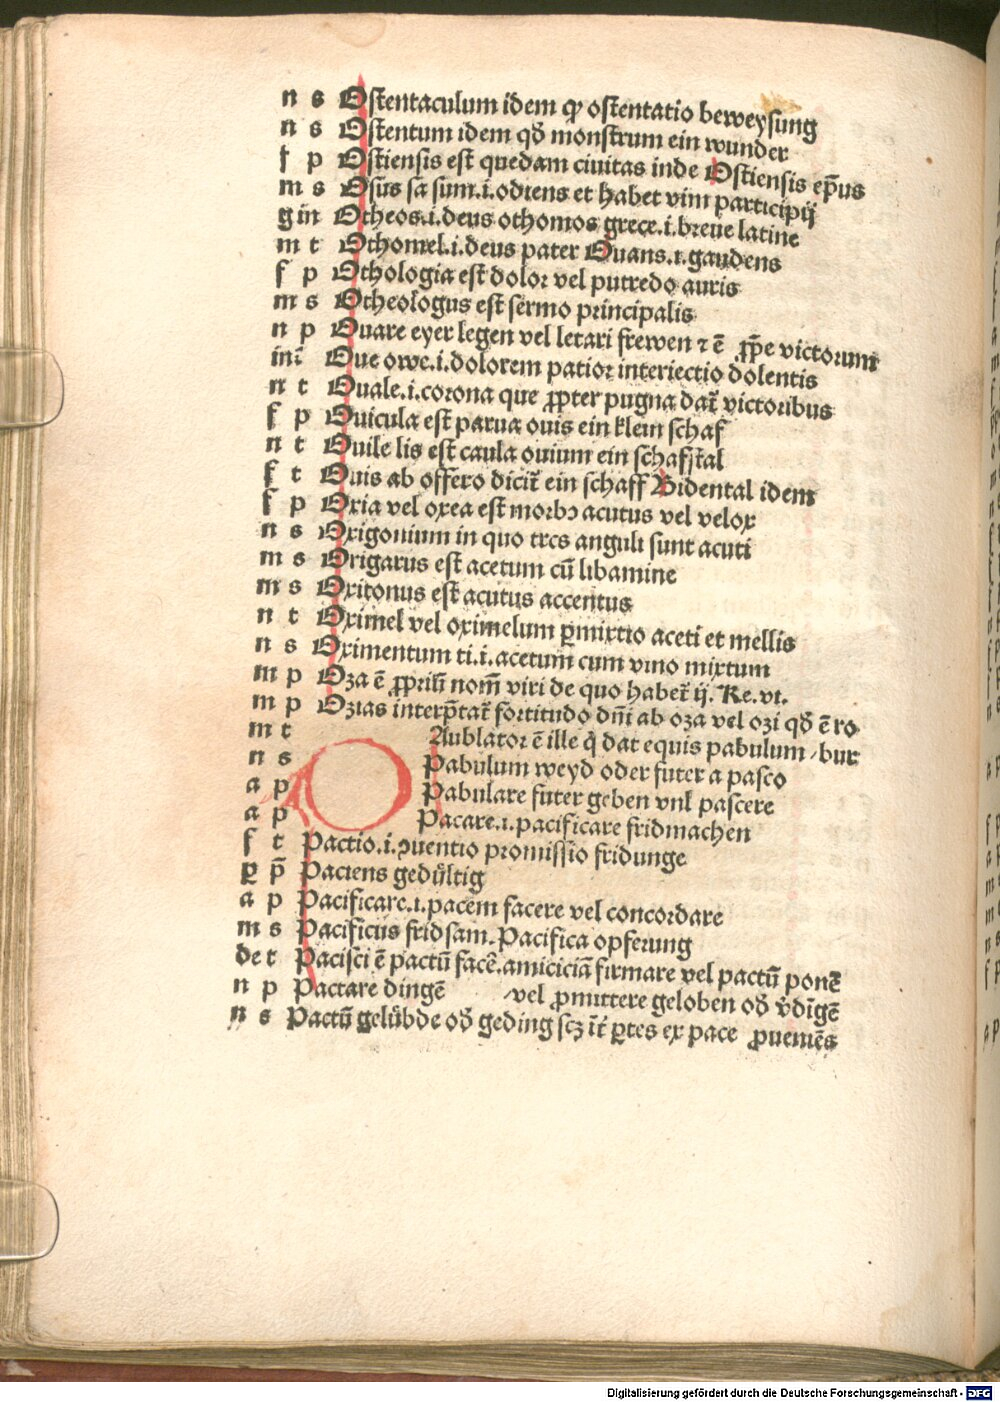 n s Ostentaculum idem ꝙ ostentatio beweysung
n s Ostentum idem qd̕ monstrum ein wunder
f p Ostiensis est quedam ciuitas inde Ostiensis ep̄us
m s Osus sa sum.i.odiens et habet vim participij
gin Otheos.i.deus othomos grece.i.breue latine
m t Othomel.i.deus pater Ouans.i.gaudens
f p Othologia est dolor vel putredo auris
m s Otheologus est sermo principalis
n p Ouare eyer legen vel letari frewen ⁊ ē ꝓp̄e victorum
int̄ Oue owe.i.dolorem patior interiectio dolentis
n t Ouale.i.corona que ꝓpter pugna dat̄ victoribus
f p Ouicula est parua ouis ein klein schaf
n t Ouile lis est caula ouium ein schafstal
f t Ouis ab offero dicit̄ ein schaff Bidental idem
f p Oxia vel oxea est morbꝰ acutus vel velox
n s Oxigonium in quo tres anguli sunt acuti
m s Origarus est acetum cū libamine
m s Oxitonus est acutus accentus
n t Oximel vel oximelum ꝑmixtio aceti et mellis
n s Oximentum ti.i.acetum cum vino mixtum
m p Oza ē ꝓpriū nom̄ viri de quo habet̄ ij. Re.vi.
m p Ozias interp̄tat̄ fortitudo dn̄i ab oza vel ozi qd̕ ē ro
m t Aublator ē ille q̇ dat equis pabulum ⸝bur
n s Pabulum weyd oder futer a pasco
a p Pabulare futer geben vnl pascere
a p Pacare.i.pacificare fridmachen
f t Pactio.i.ꝯuentio promissio fridunge
ꝑ p̄ Paciens gedültig
a p Pacificare.i.pacem facere vel concordare
m s Pacificus fridsam.Pacifica opferung
de t Pacisci ē pactū facē.amiciciā firmare vel pactū ponē
n p Pactare dingē ⸝vel ꝓmittere geloben od̕ v̕dīgē
n s Pactū gelübde od̕ geding scꝫ īt̄ ꝑtes ex pace ꝓueniēs
Digitalisierung gefördert durch die Deutsche Forschungsgemeinschaft - DFG